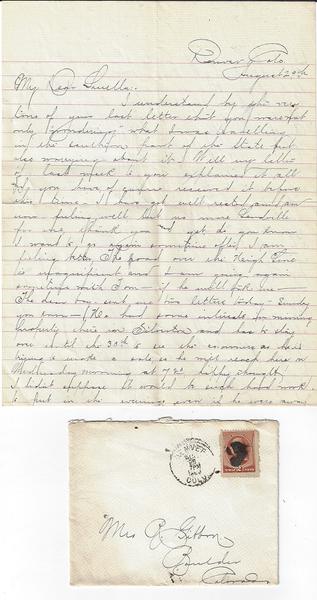 Denver, Colo
August 20th
My Dear Luella.
I understand by the very
tone of your last letter that you were not
only wondering what I was travelling
in the southern part of the State but
also worrying about it. Well my letter
of last week to you explained it all
and you have of course received it before
this time. I have got well rested and am
now feeling well but no more Leadville
for me, thank you and yet do you know
I want to go again sometime after I am
feeling better. The road over the High Line
is magnificent and I am going again
sometime with Tom - if he will take me -
The dear boy sent me two letters today - Sunday
you know - He had some interests for mining
property there in Silverton and has to stay
over until the 30th & see the examiners as they
trying to make a sale, so he will reach here on
Wednesday morning at 7.20 happy thought
I didn't suppose it would be such hard work
to put in the evenings even if he was away
DENVER
COLO
Mrs R. Gibbon
Boulder
Colorado